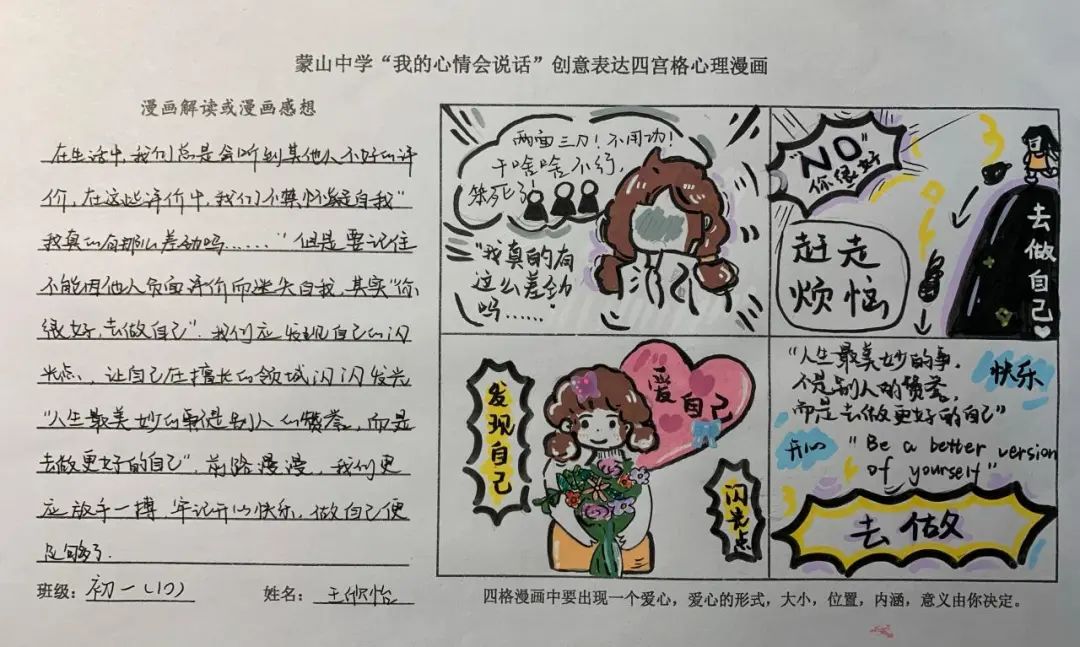 蒙山中学“我的心情会说话”创意表达四宫格心理漫画
漫画解读或漫画感想
在生活中,我们总是会听到其他人不好的评
价,在这些评价中,我们不禁怀疑自我"
我真的有那么差劲吗……"但是要记住
不能因他人负面评价而迷失自我,其实"你
很好,去做自己".我们应发现自己的闪
光点,让自己在擅长的领域闪闪发光
"人生最美妙的事是别人的赞誉,而是
去做更好的自己",前路漫漫,我们更
应放手一搏,牢记开心快乐,做自己便
足够了.
班级:初一(10)
姓名:王欣怡
两面三刀!不用功!
干啥啥不行,
笨死了!
"我真的有
这么差劲
吗……"
"NO"
你很好
赶走
烦恼
去做自己
发现自己
爱自己
闪光点
"人生最美妙的事,
不是别人的赞誉,
而是去做更好的自己"
快乐
开心
"Be a better version
of yourself"
去做
四格漫画中要出现一个爱心,爱心的形式,大小,位置,内涵,意义由你决定。